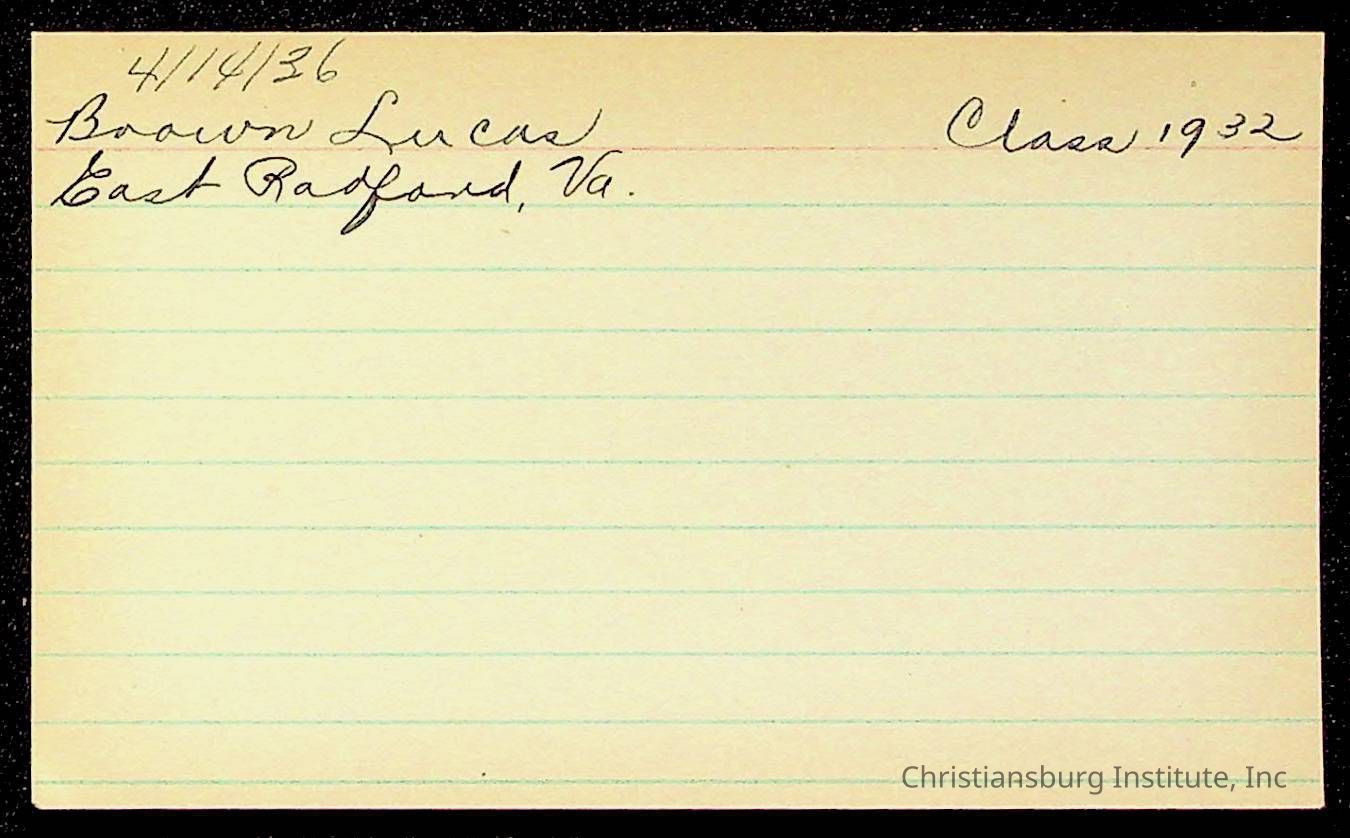 4/14/36
Brown Lucas Class 1932
East Radford, Va.
Christiansburg Institute, Inc